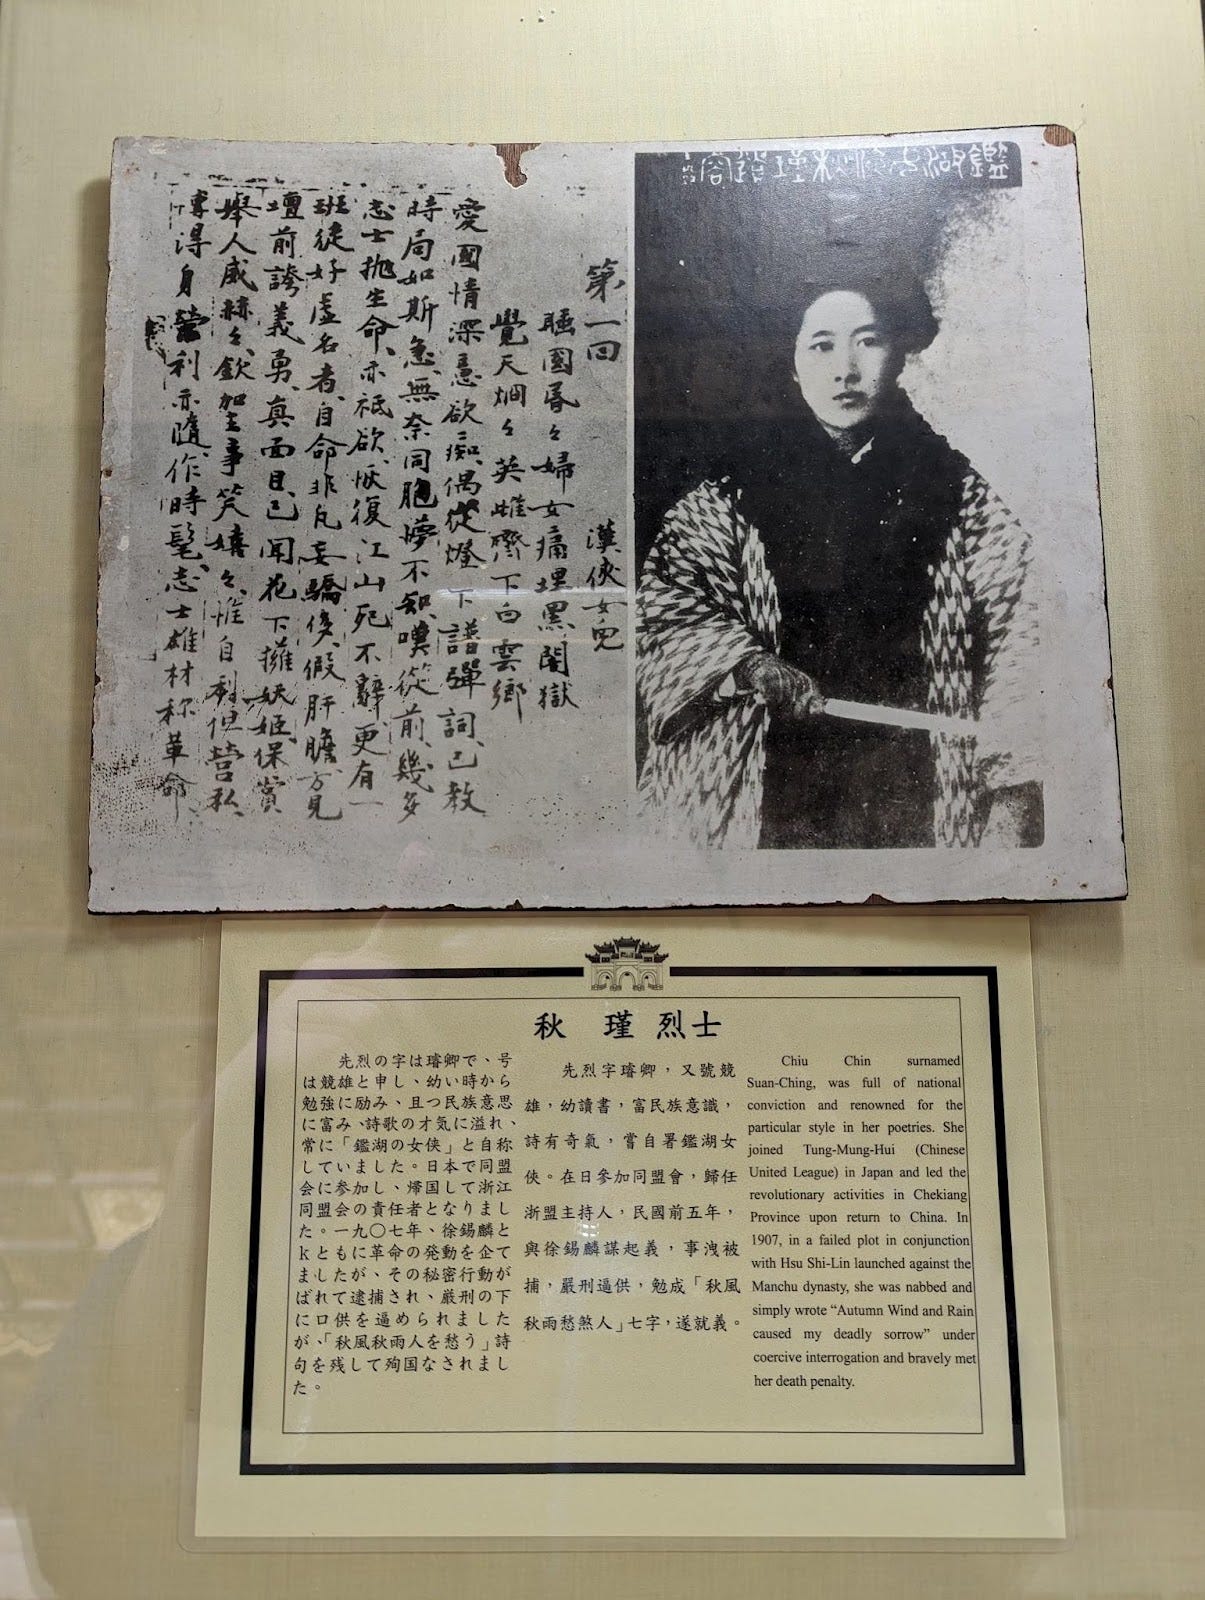 鑑湖女俠秋瑾遺容
第一回 漢俠女兒
睡國昏々婦女痛埋黑闇獄
覺天炯々英雌齊下白雲鄉
愛國情深意欲癡、偶從燈下譜彈詞、已教
時局如斯急、無奈同胞夢不知、嘆從前、幾多
志士拋生命、亦祇欲恢復江山死不辭、更有一
班徒好虛名者、自命非凡妄驕侈、假肝膽、方見
壇前誇義勇、真面目、已聞花下擁妖姬、保賞
舉人威赫々、欽加主事笑嬉々、惟自利、但營私、
博得身榮利亦隨、作時髦、志士雄材称革命
秋 瑾 烈士
先烈の字は璿卿で、号
は競雄と申し、幼い時から
勉強に励み、且つ民族意思
に富み、詩歌の才気に溢れ、
常に「鑑湖の女侠」と自称
していました。日本で同盟
会に参加し、帰国して浙江
同盟会の責任者となりまし
た。一九〇七年、徐錫麟と
kともに革命の発動を企て
ましたが、その秘密行動が
ばれて逮捕され、厳刑の下
に口供を逼められました
が、「秋風秋雨人を愁う」詩
句を残して殉国なされまし
た。
先烈字璿卿，又號競
雄，幼讀書，富民族意識，
詩有奇氣，嘗自署鑑湖女
俠。在日參加同盟會，歸任
浙盟主持人，民國前五年，
與徐錫麟謀起義，事洩被
捕，嚴刑逼供，勉成「秋風
秋雨愁煞人」七字，遂就義。
Chiu Chin surnamed
Suan-Ching, was full of national
conviction and renowned for the
particular style in her poetries. She
joined Tung-Mung-Hui (Chinese
United League) in Japan and led the
revolutionary activities in Chekiang
Province upon return to China. In
1907, in a failed plot in conjunction
with Hsu Shi-Lin launched against the
Manchu dynasty, she was nabbed and
simply wrote “Autumn Wind and Rain
caused my deadly sorrow” under
coercive interrogation and bravely met
her death penalty.